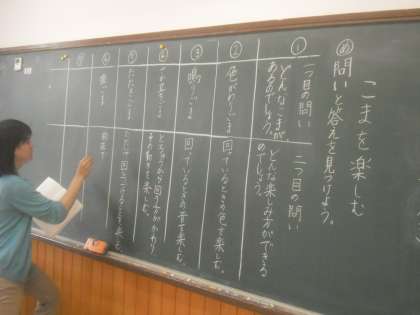 こまを楽しむ
め 問いと答えを見つけよう。
① 一つ目の問い
どんなこまが、
あるのでしょう。
二つ目の問い
どんな楽しみ方ができる
のでしょう。
② 色がわりごま
回っているときの色を楽しむ。
③ 鳴りごま
回っているときの音を楽しむ。
④ さか立ちごま
とちゅうから回り方がかわり
その動きを楽しむ。
⑤ たたきごま
たたいて回しつづけることを楽しむ。
⑥ 曲ごま
曲芸で
⑦